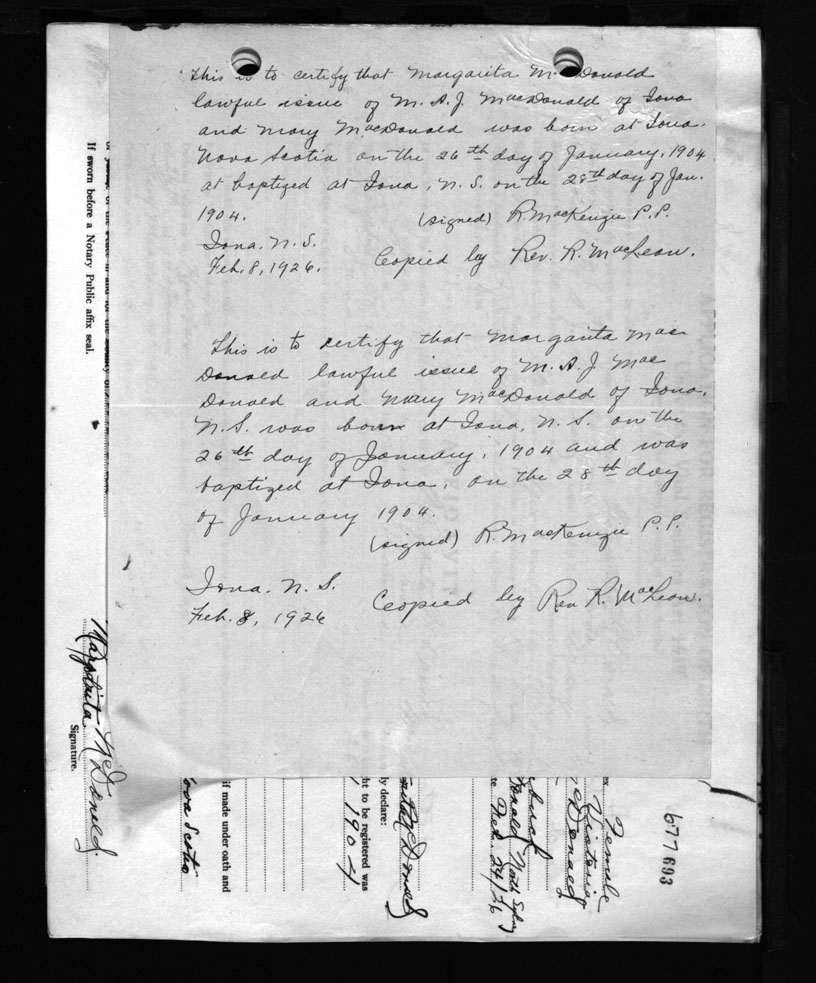 This is to certify that Margarita McDonald
lawful issue of M. A. J. MacDonald of Iona
and Mary MacDonald was born at Iona.
Nova Scotia on the 26th day of January, 1904
at baptized at Iona, N. S. on the 28th day of Jan.
1904.
(signed) R. MacKenzie P. P.
Iona. N. S.
Feb. 8, 1926. Copied by Rev. R. MacLean.
This is to certify that Margarita Mac
Donald lawful issue of M. A. J. Mac
Donald and Mary MacDonald of Iona,
N. S. was born at Iona, N. S. on the
26th day of January, 1904 and was
baptized at Iona, on the 28th day
of January 1904.
(signed) R. MacKenzie P. P.
Iona. N. S.
Feb. 8, 1926 Copied by Rev. R. MacLean.
If sworn before a Notary Public affix seal.
Margarita McDonald.
Signature.
677693
Female
Victoria
McDonald
Donald North Sydney
Feb. 24/26
ly declare:
McDonald
ht to be registered was
1904
if made under oath and
ova Scotia